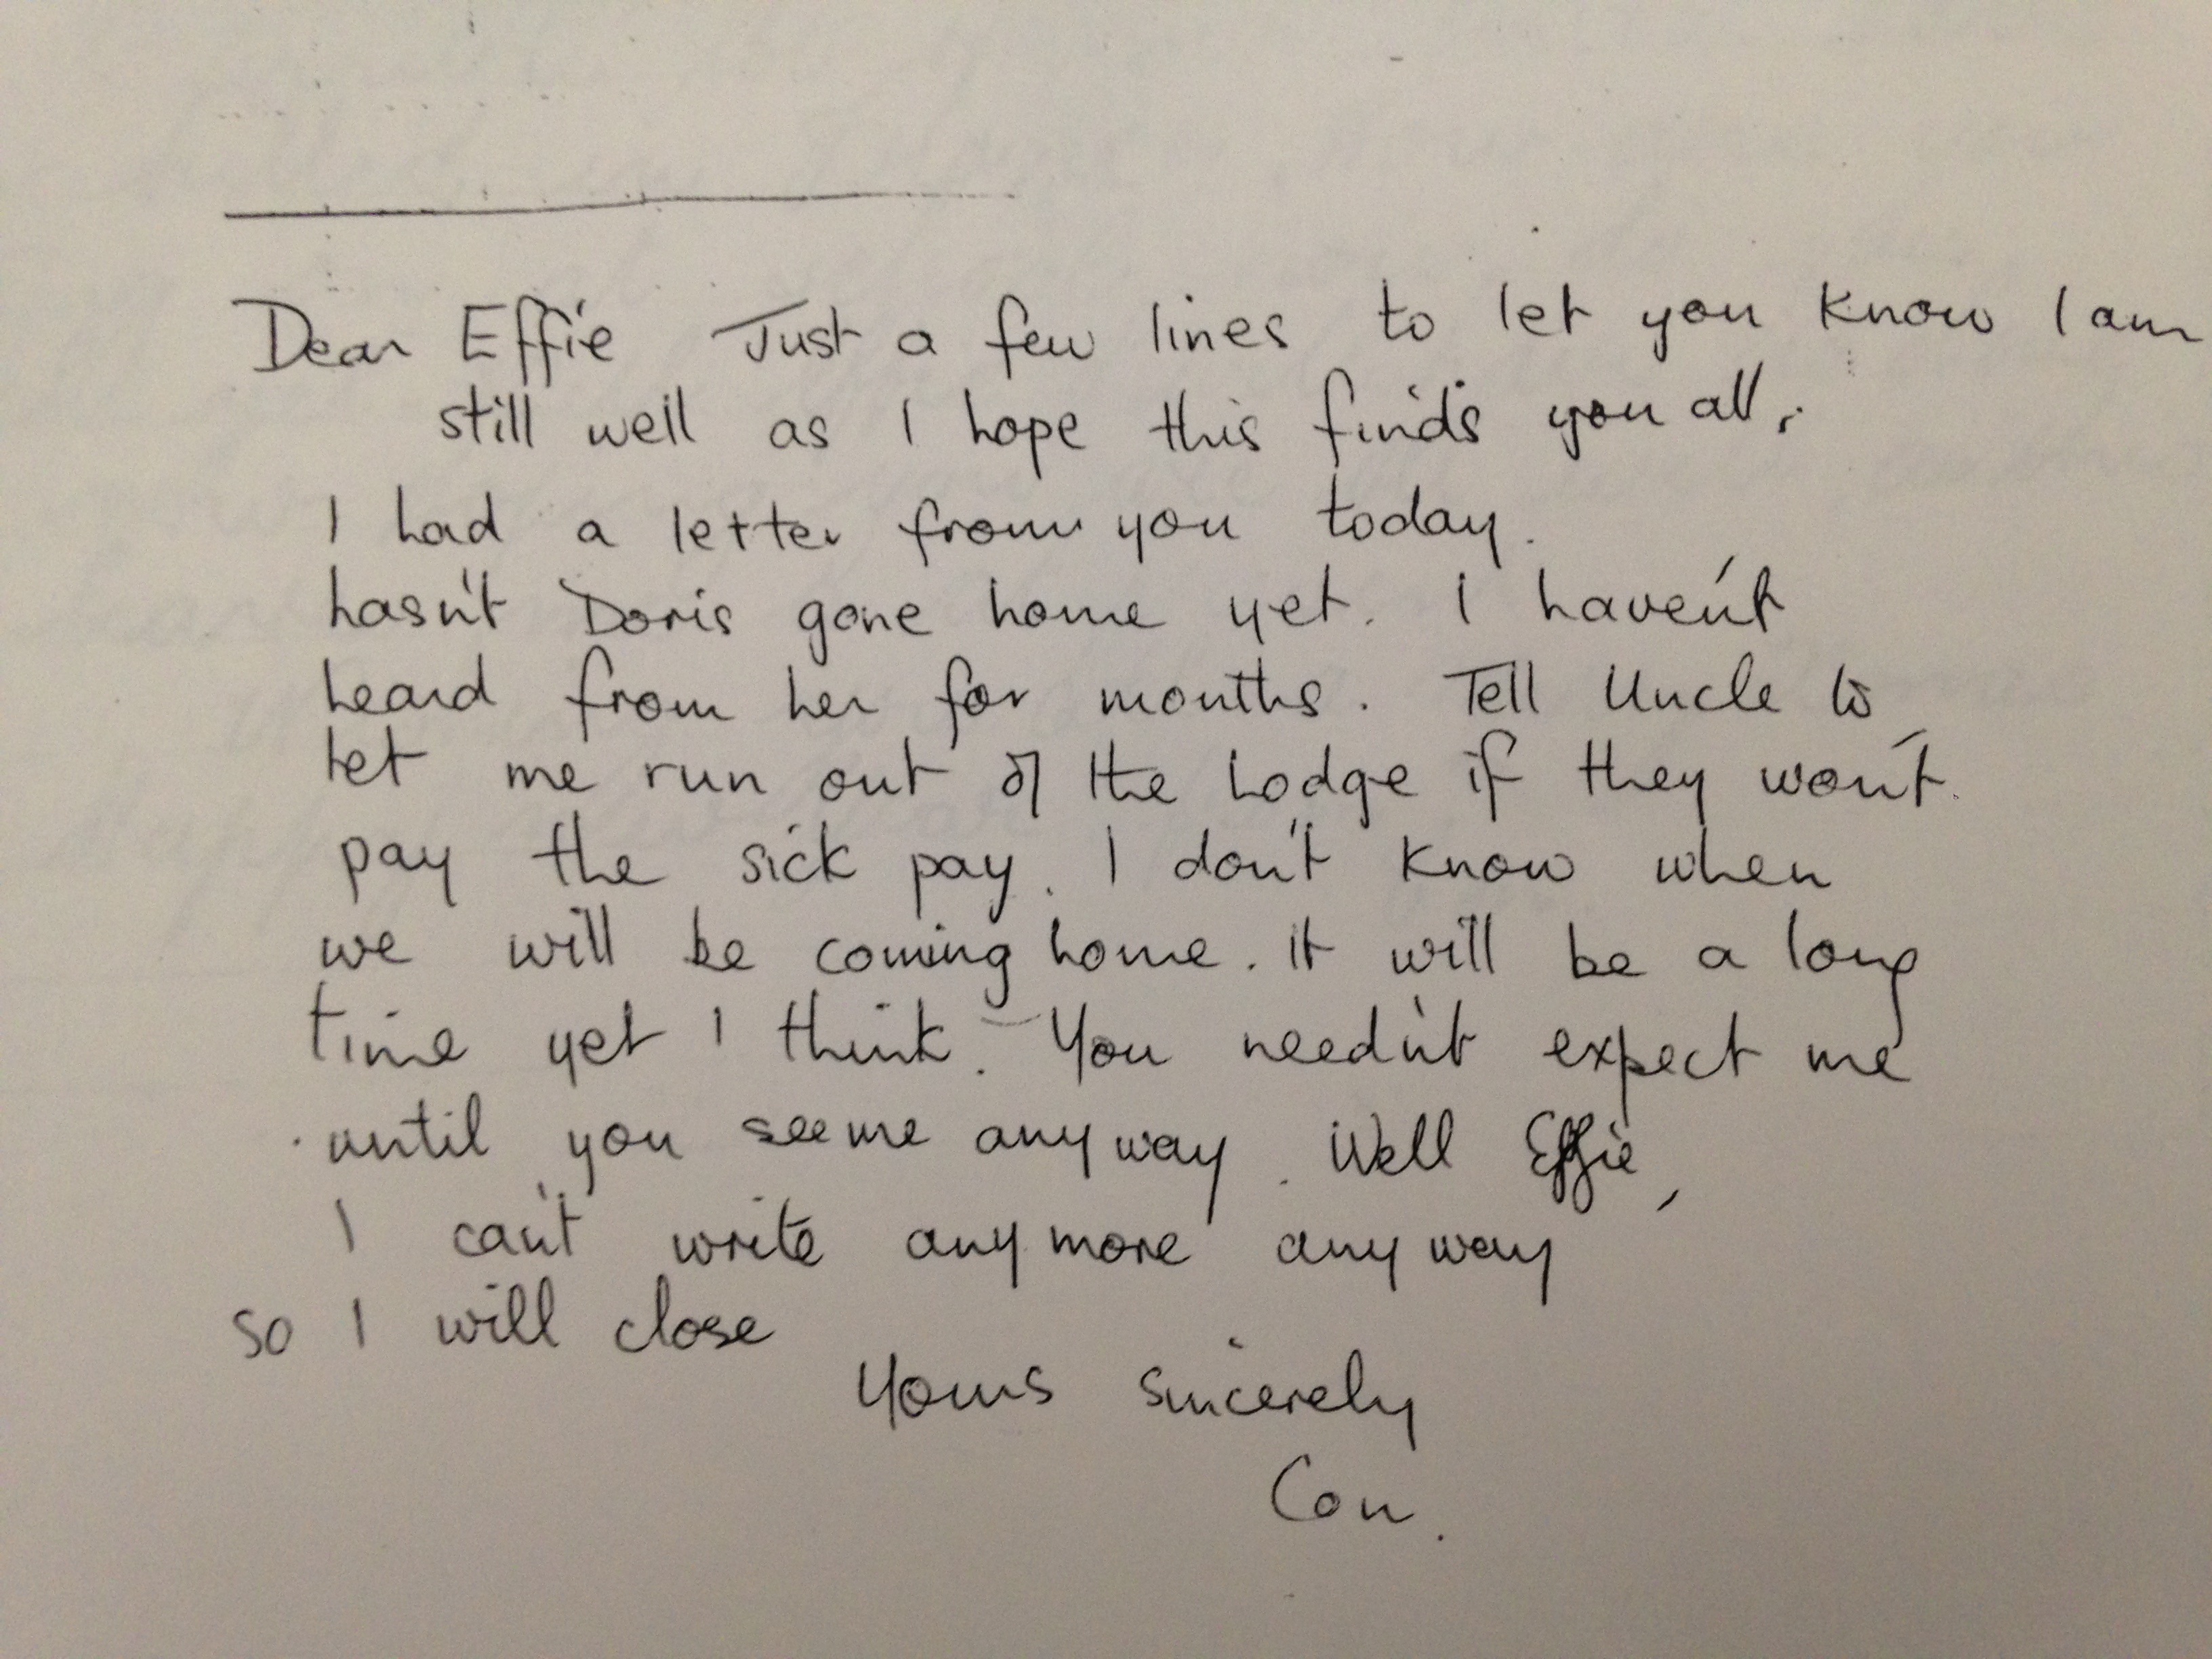 Dear Effie Just a few lines to let you know I am
still well as I hope this finds you all.
I had a letter from you today.
hasn't Doris gone home yet. I haven't
heard from her for months. Tell Uncle to
let me run out of the Lodge if they won't
pay the sick pay. I don't know when
we will be coming home. It will be a long
time yet I think. You needn't expect me
until you see me any way. Well Effie,
I can't write any more any way
so I will close
Yours sincerely
Con.